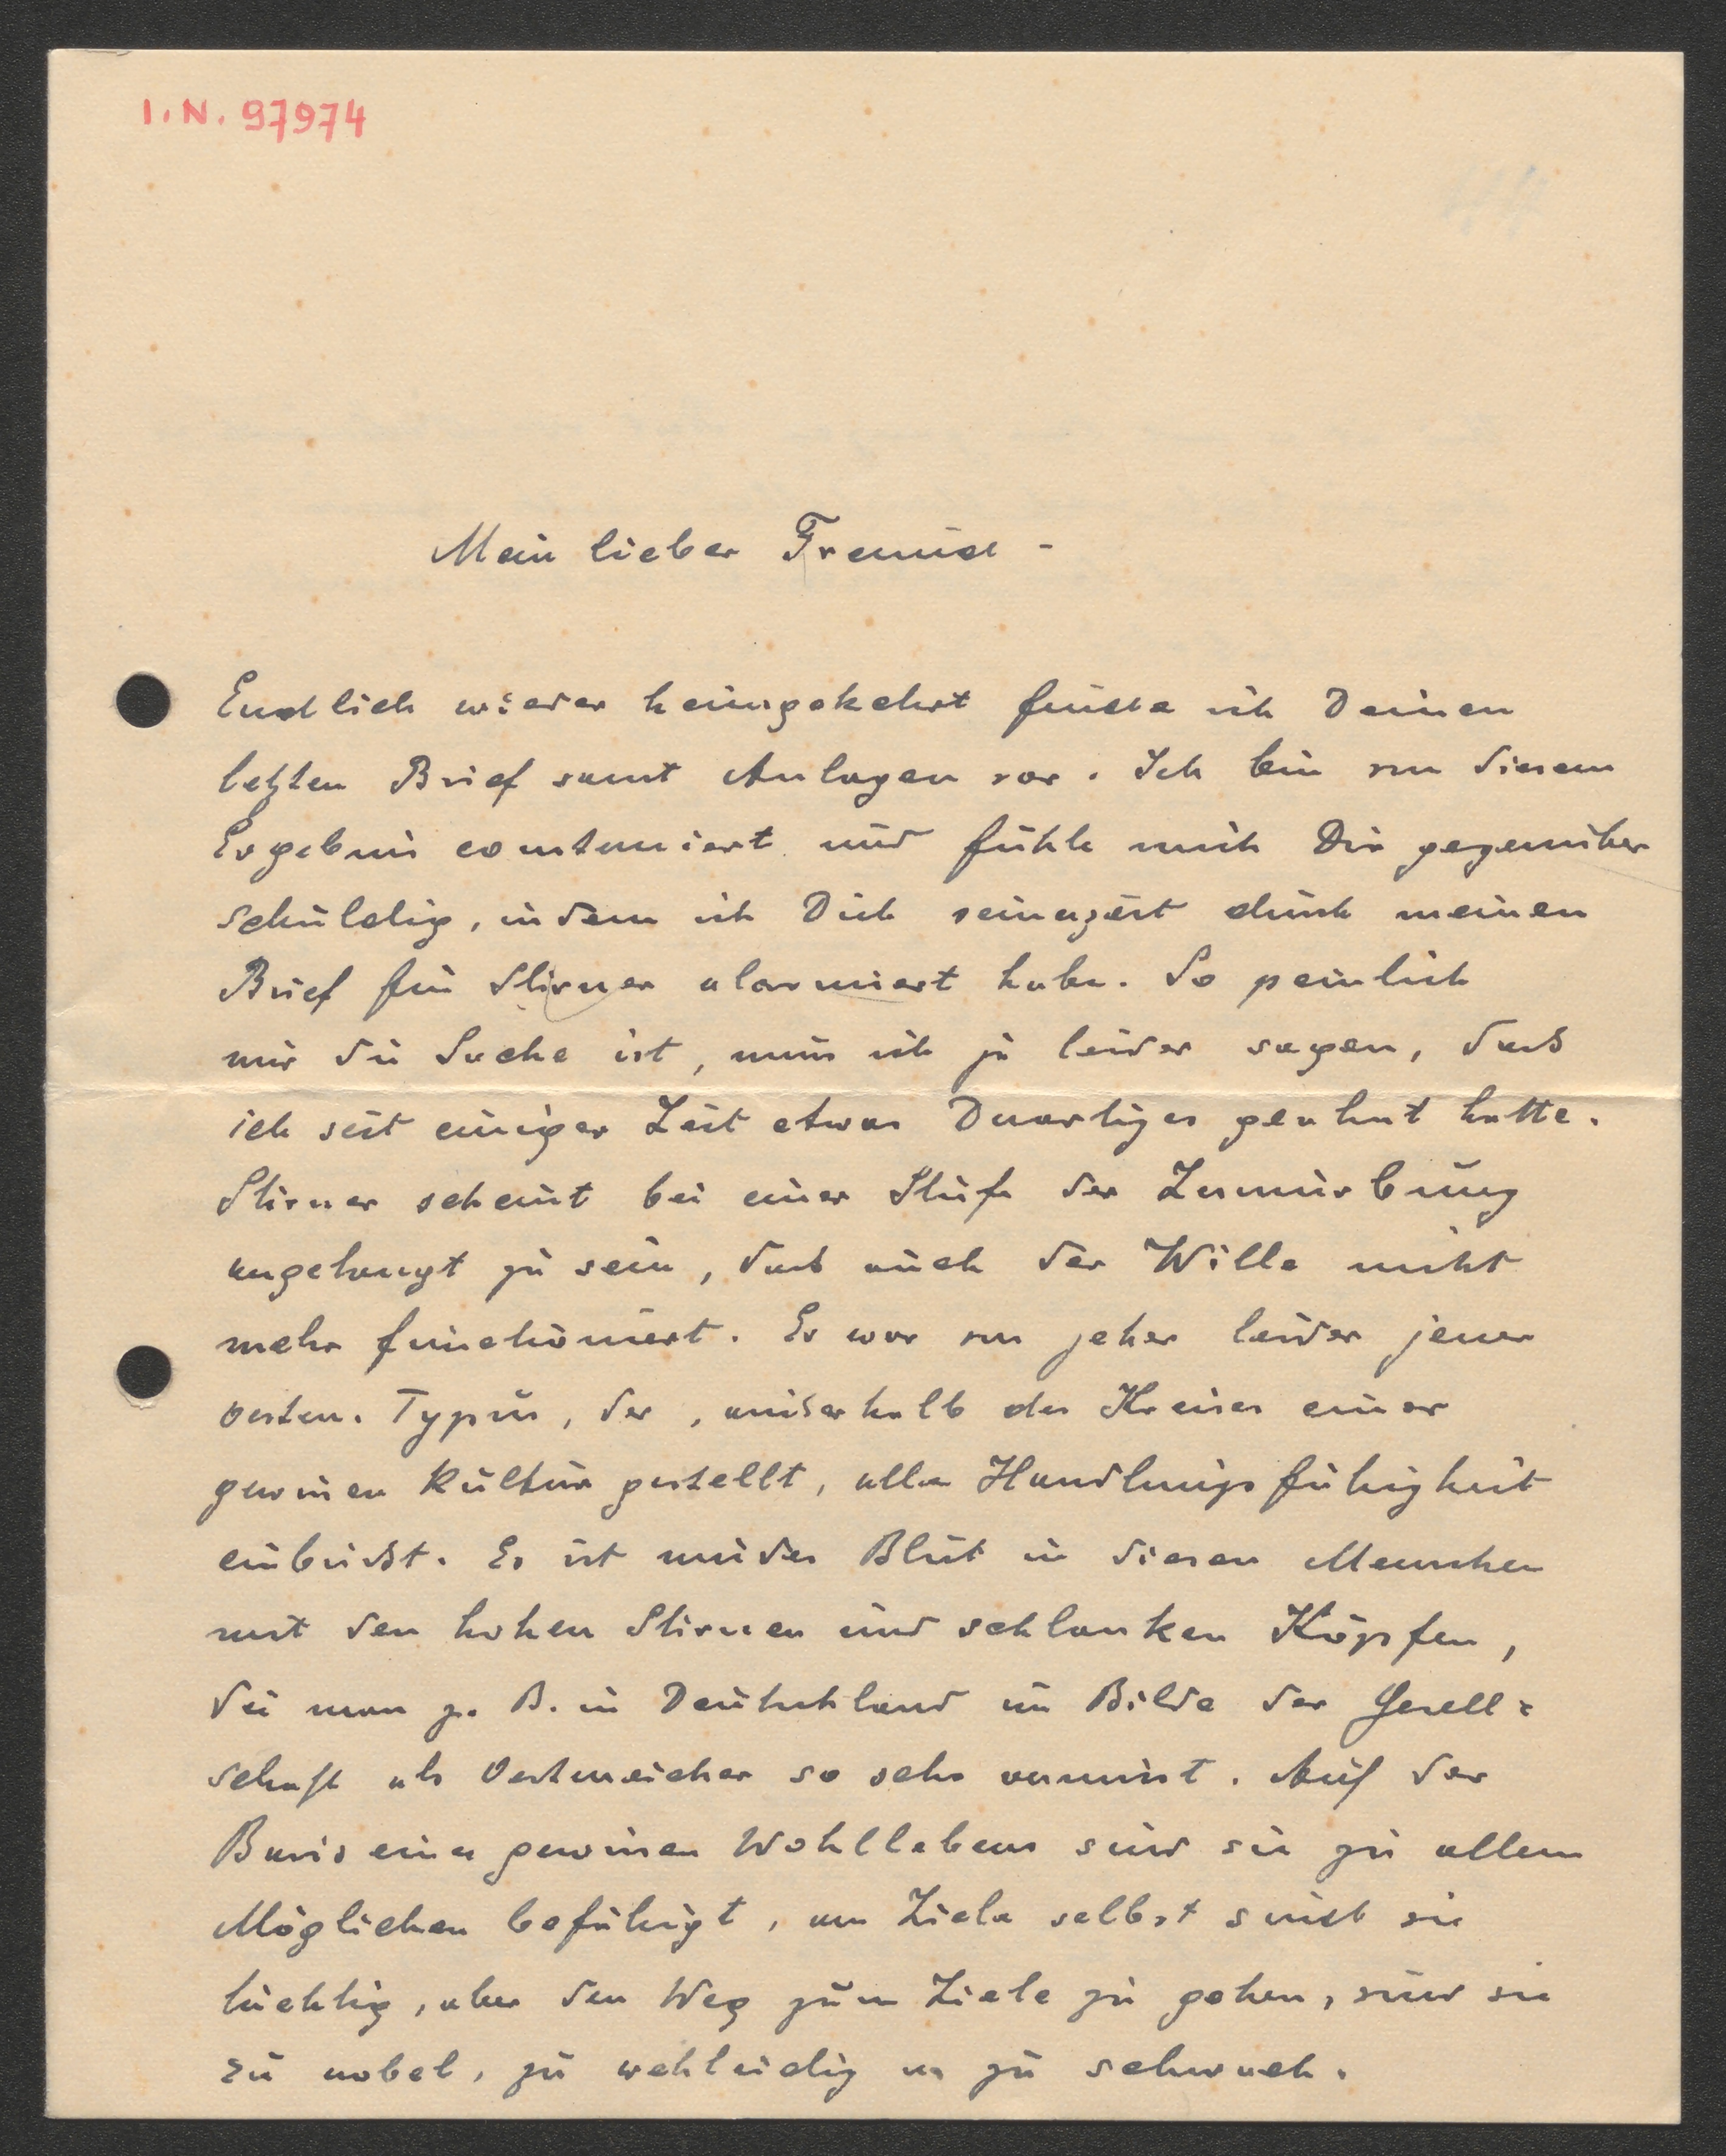 I. N. 97974
Mein lieber Freund -
Endlich wieder heimgekehrt finde ich Deinen
letzten Brief samt Anlagen vor. Ich bin von diesem
Ergebnis consterniert und fühle mich Dir gegenüber
schuldig, indem ich Dich seinerzeit durch meinen
Brief für Stirner alarmiert habe. So peinlich
mir die Sache ist, muss ich ja leider sagen, daß
ich seit einiger Zeit etwas Derartiges geahnt hatte.
Stirner scheint bei einer Stufe der Zermürbung
angelangt zu sein, daß auch der Wille nicht
mehr functioniert. Er war von jeher leider jener
oesterr. Typus, der, außerhalb des Kreises einer
gewissen Kultur gestellt, alle Handlungsfähigkeit
einbüßt. Es ist müdes Blut in diesen Menschen
mit den hohen Stirnen und schlanken Köpfen,
die man z. B. in Deutschland im Bilde der Gesell=
schaft als Oesterreicher so sehr vermisst. Auf der
Basis eines gewissen Wohllebens sind sie zu allem
Möglichen befähigt, am Ziele selbst sind sie
tüchtig, aber den Weg zum Ziele zu gehen, sind sie
zu nobel, zu wehleidig u. zu schwach.